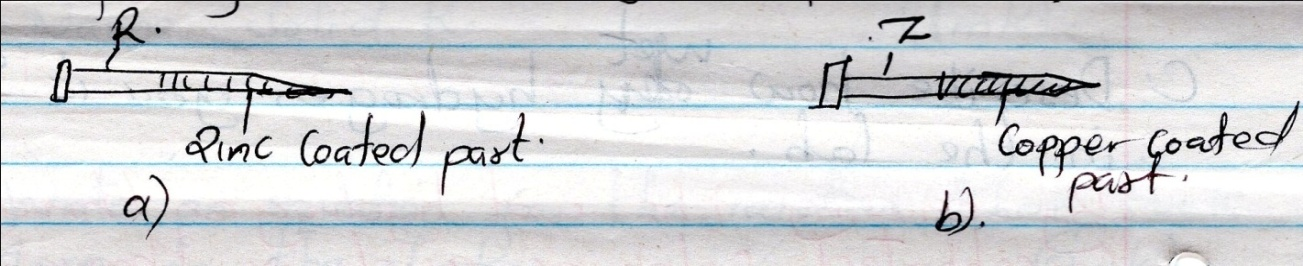 R.
Z
Zinc Coated part.
Copper coated
part.
a)
b).